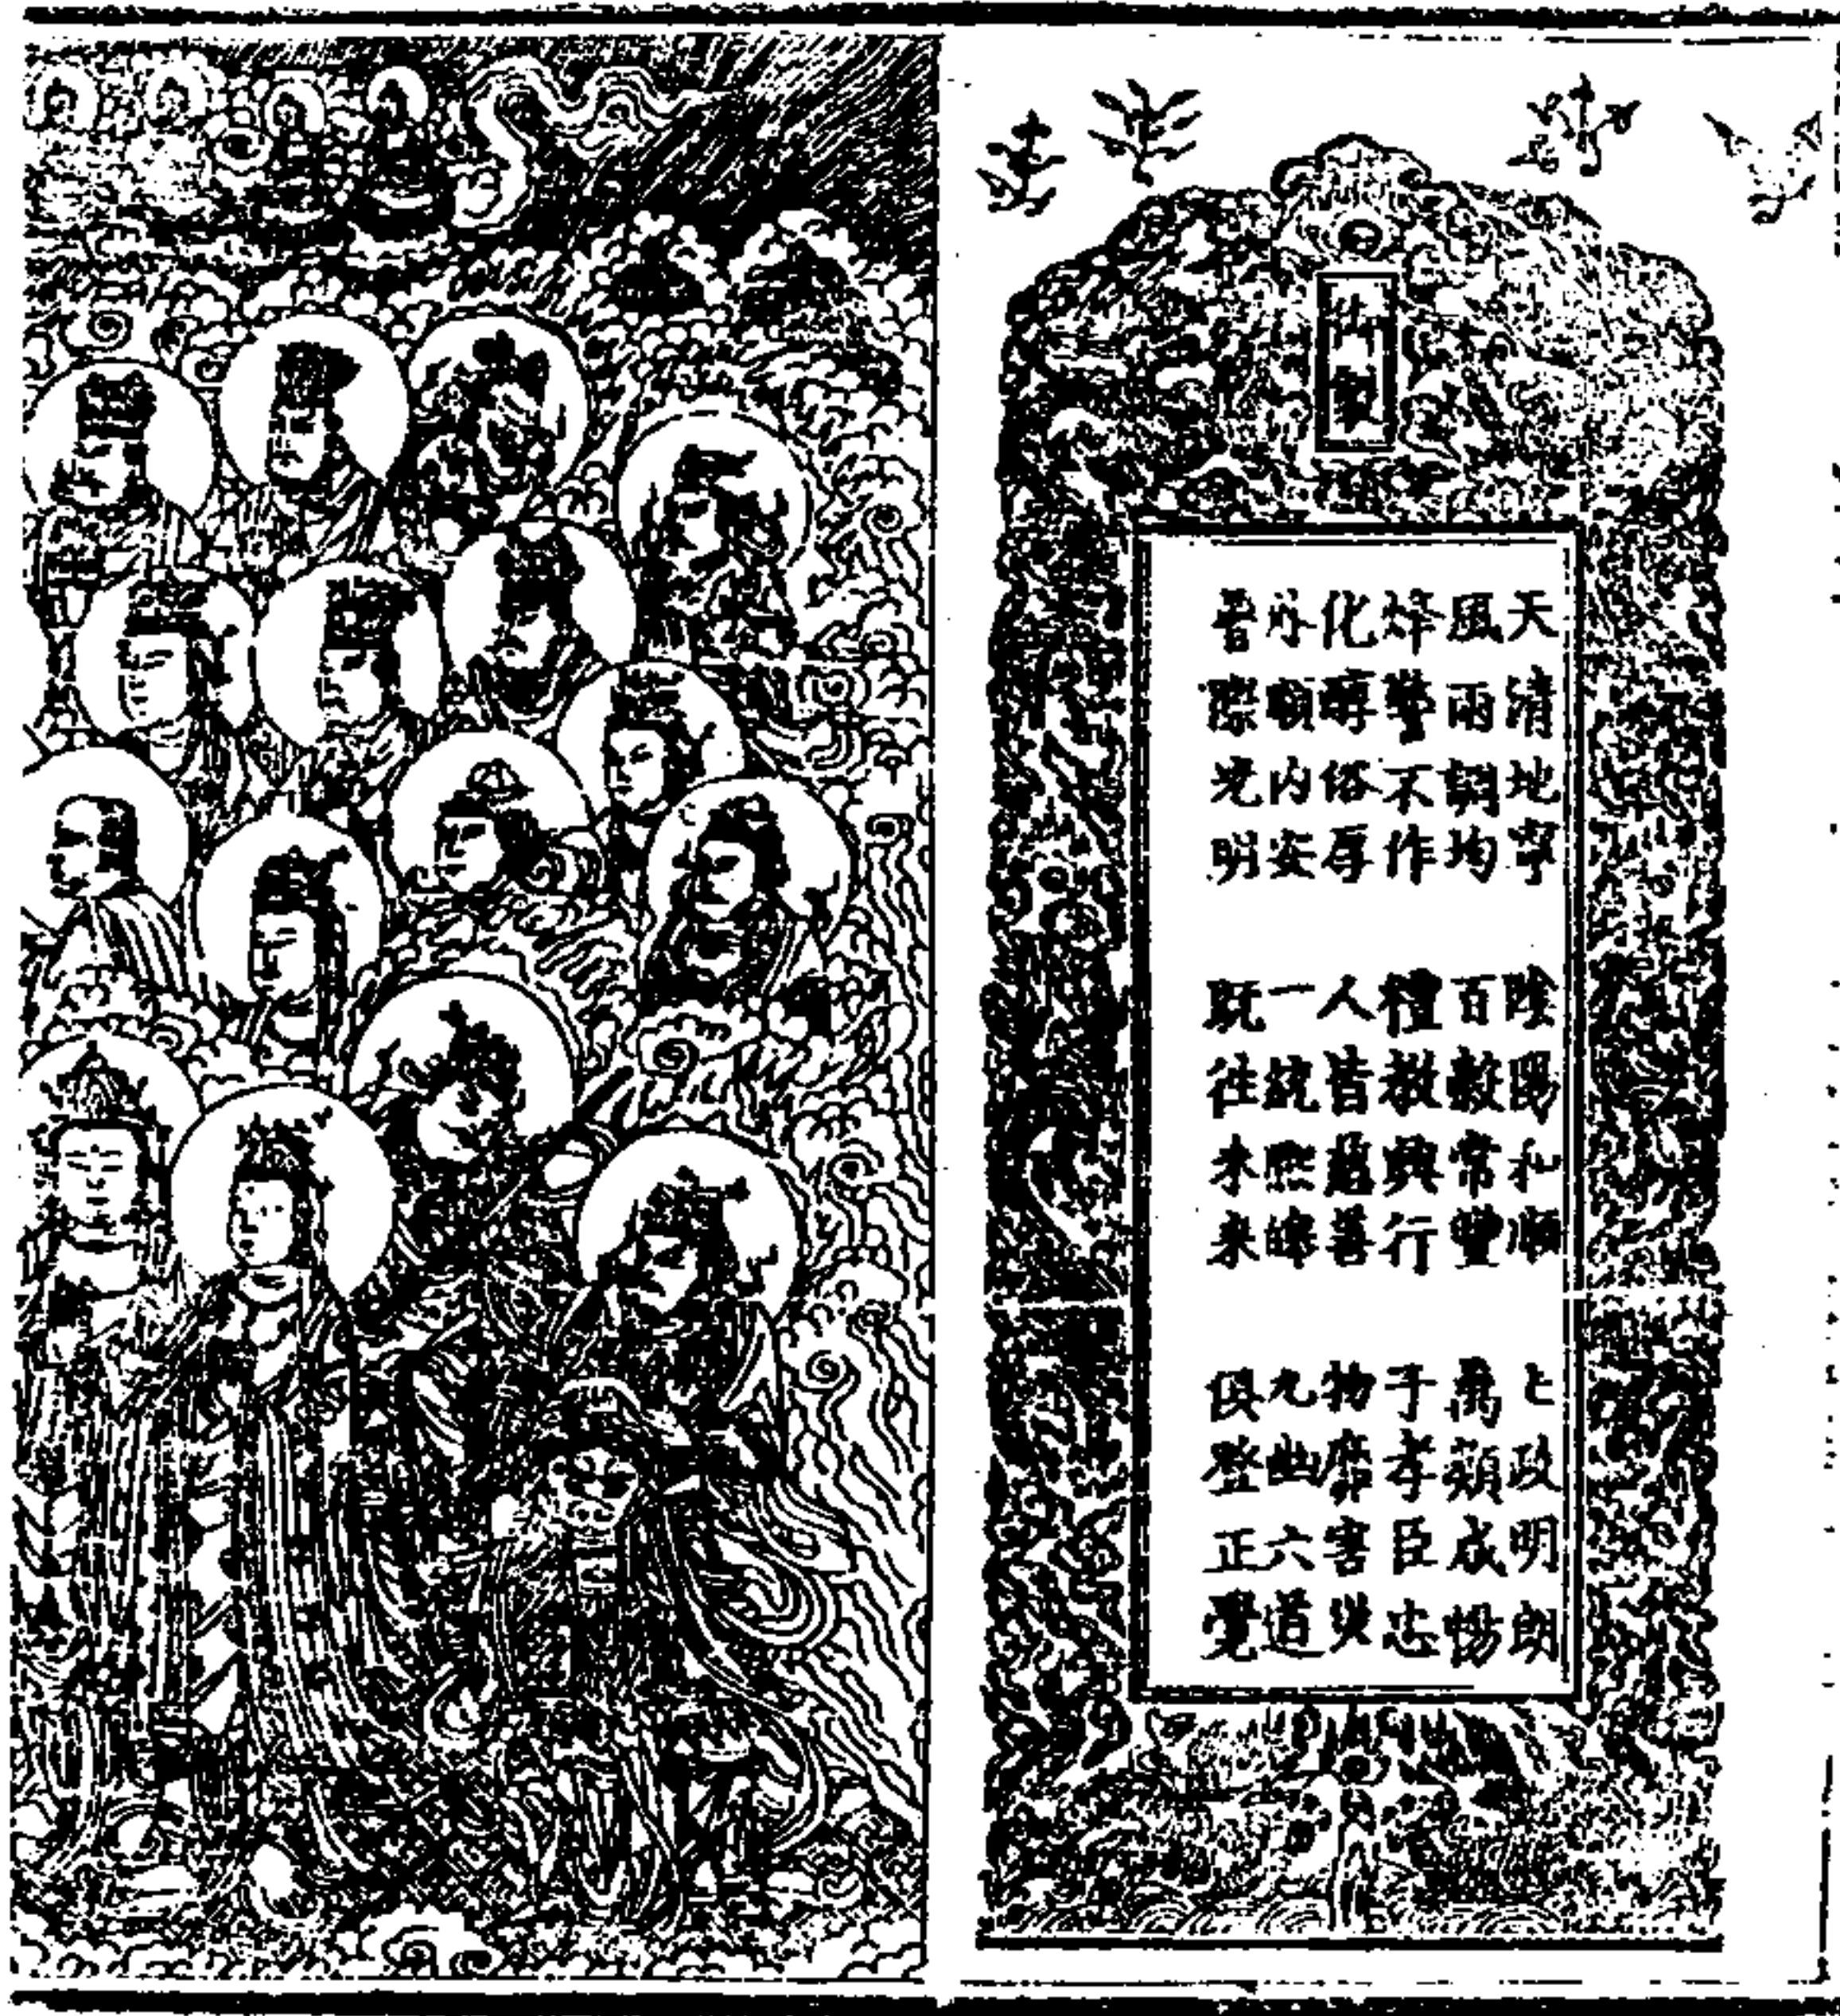 御製
天清地寧 陰陽和順 七政明朗
風雨調均 百穀常豐 萬類咸暢
烽警不作 禮教興行 子孝臣忠
化醇俗厚 人皆慈善 物靡害災
外順内安 一統熙皞 九幽六道
普際光明 既往未來 俱登正覺